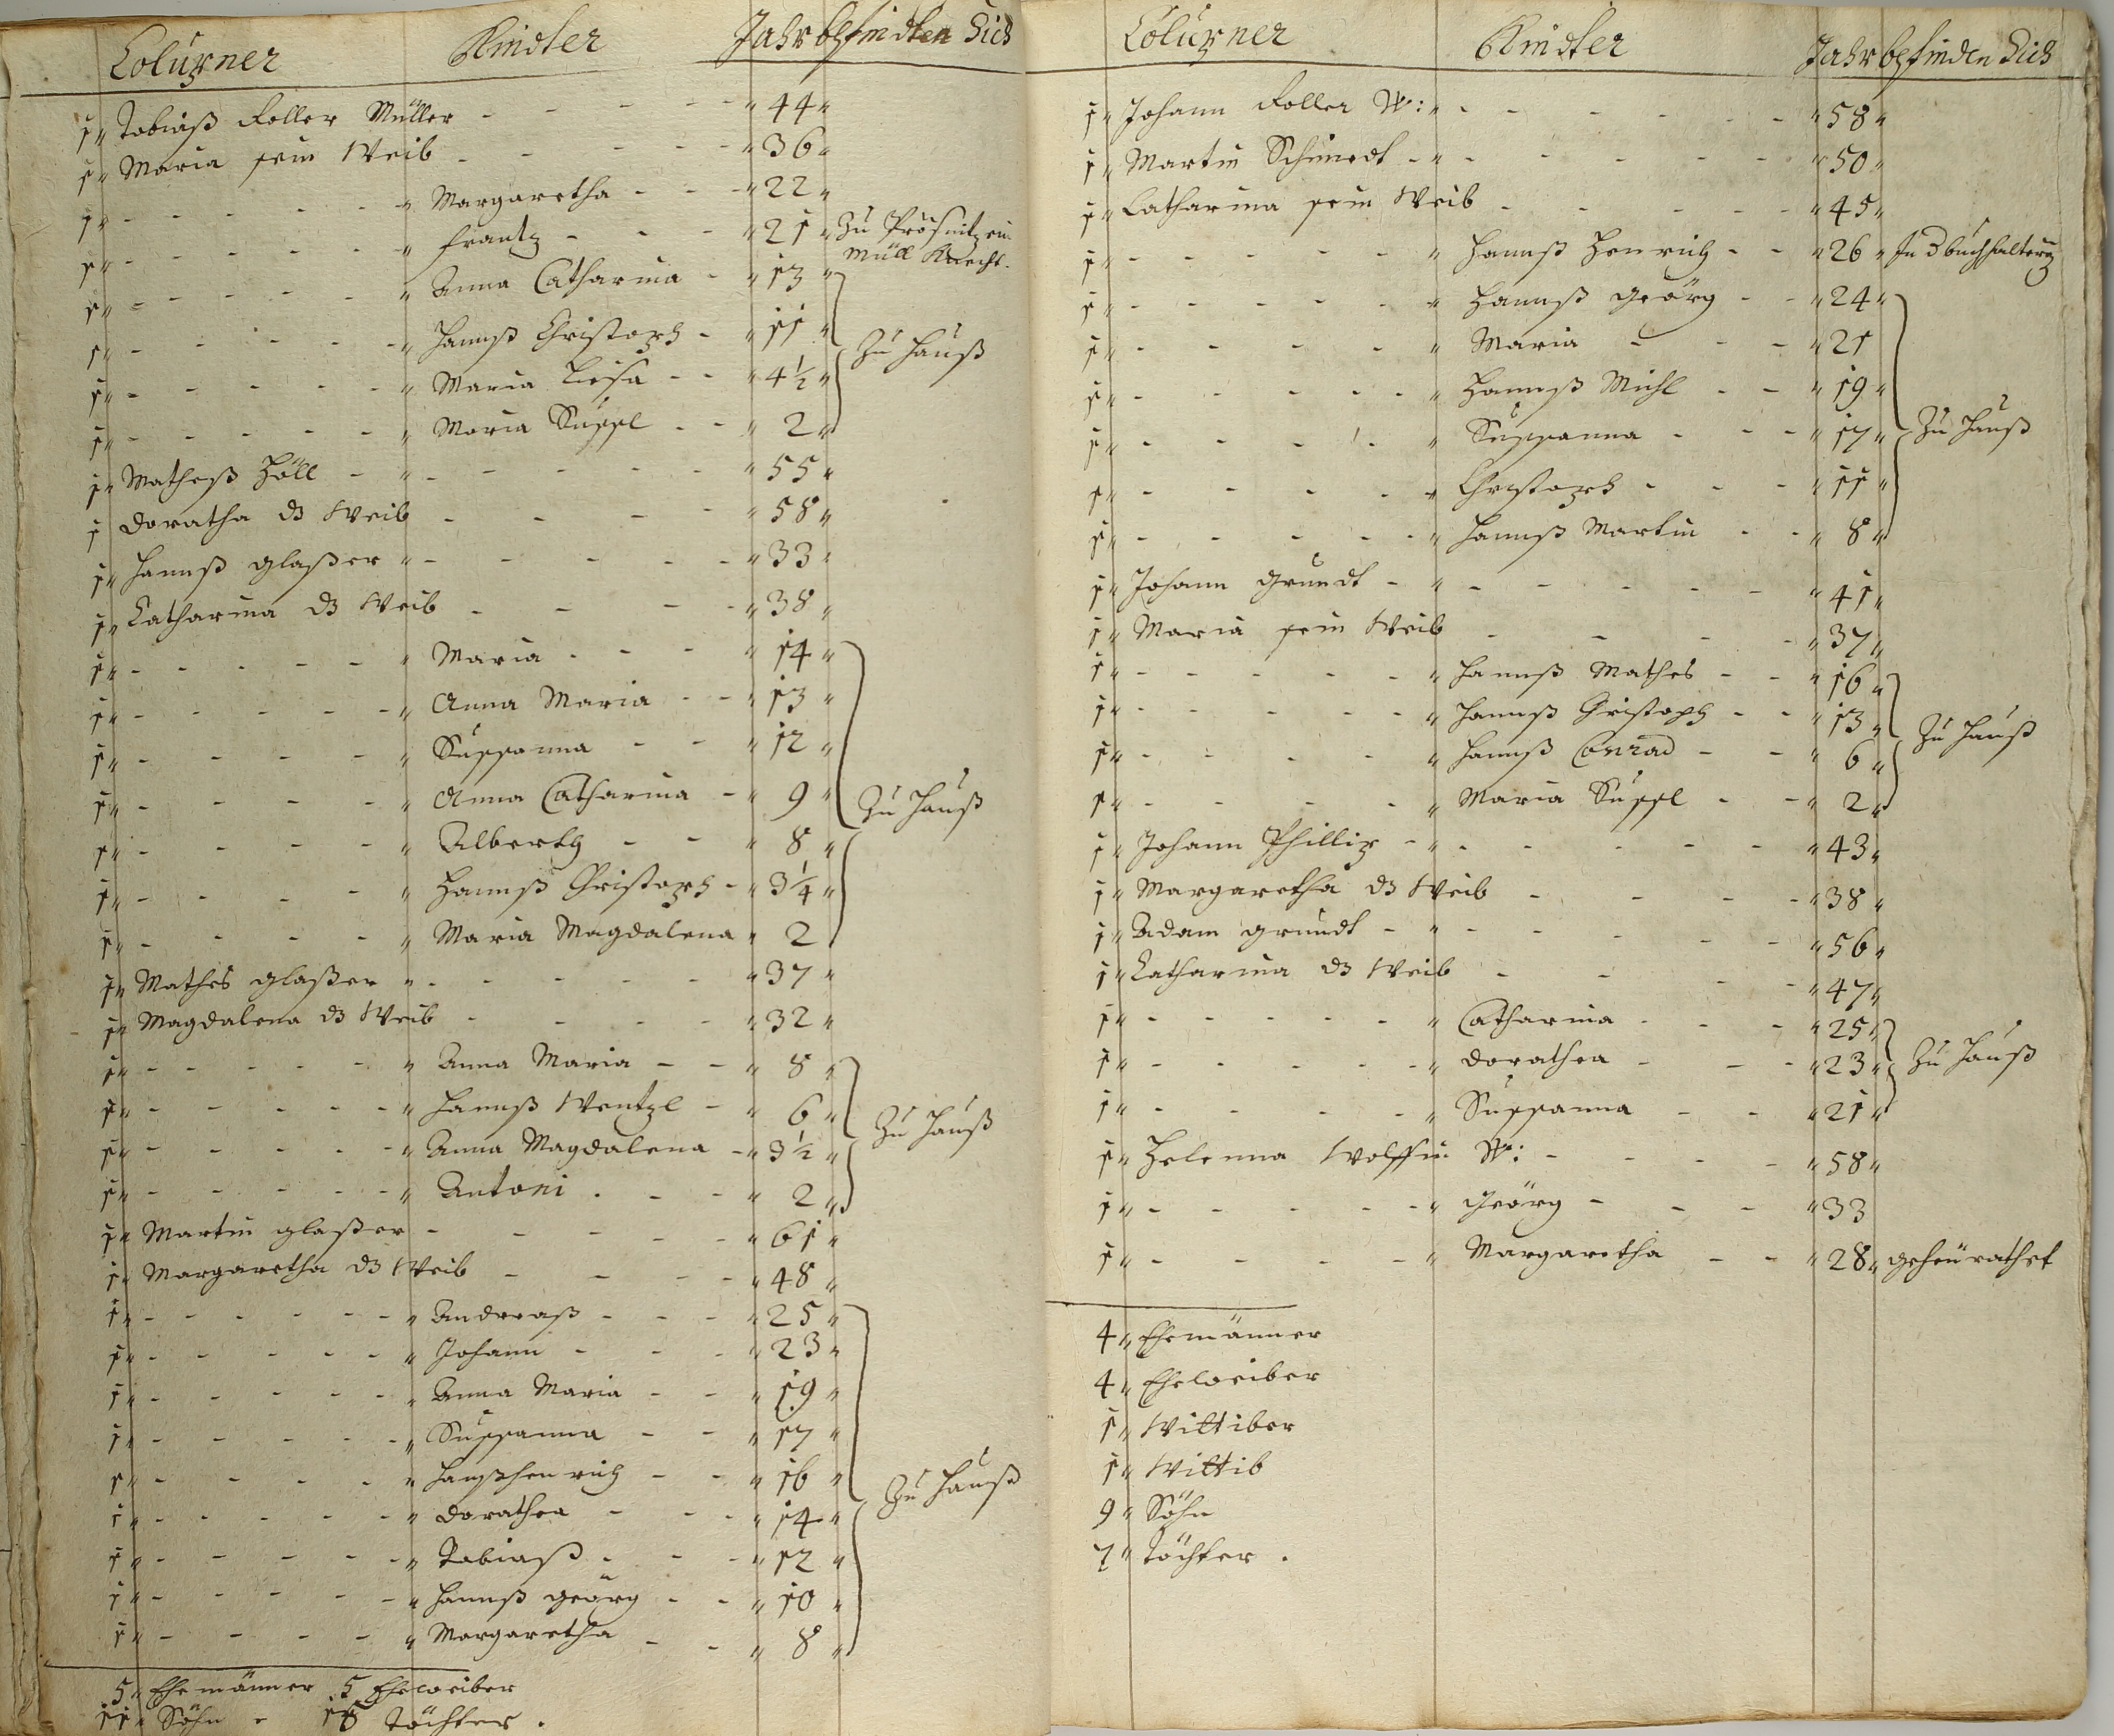 Colurner Kindter Jahr befindten Sich
1 Tobiaß Roller Müller 44
1 Maria sein Weib 36
1 Margaretha 22
1 Frantz 21 Zu Prösnitz ein Müll Knecht.
1 Anna Catharina 13
1 Hannß Christoph 11 Zu Hauß
1 Maria Liesa 4½
1 Maria Sussl 2
1 Matheß Höll 55
1 Doratha d3 Weib 58
1 Hannß glaßer 33
1 Catharina d3 Weib 38
1 Maria 14
1 Anna Maria 13
1 Sussanna 12
1 Anna Catharina 9 Zu Hauß
1 Alberth 8
1 Hannß Christoph 3¼
1 Maria Magdalena 2
1 Mathes glaßer 37
1 Magdalena d3 Weib 32
1 Anna Maria 8
1 Hannß Wentzl 6 Zu Hauß
1 Anna Magdalena 3½
1 Antoni 2
1 Martin glaßer 61
1 Margaretha d3 Weib 48
1 Andreaß 25
1 Johann 23
1 Anna Maria 19
1 Sussanna 17
1 Hanßhenrich 16 Zu Hauß
1 Dorathea 14
1 Tobiaß 12
1 Hannß Geörg 10
1 Margaretha 8
5 Ehemänner 5 Eheweiber
11 Söhn 16 Töchter.
Colurner Kindter Jahr befinden Sich
1 Johann Roller W: 58
1 Martin Schmedt 50
1 Catharina sein Weib 45
1 Hannß Henrich 26 In d buchhalterey
1 Hannß Geörg 24
1 Maria 21
1 Hannß Michl 19
1 Sussanna 17 Zu Hauß
1 Christoph 11
1 Hannß Martin 8
1 Johann Grundt 41
1 Maria sein Weib 37
1 Hannß Mathes 16
1 Hannß Christoph 13 Zu Hauß
1 Hannß Conrad 6
1 Maria Sussl 2
1 Johann Phillip 43
1 Margaretha d3 Weib 38
1 Adam grundt 56
1 Catharina d3 Weib 47
1 Catharina 25
1 Dorathea 23 Zu Hauß
1 Sussanna 21
1 Helenna Wolffin W: 58
1 Geörg 33
1 Margaretha 28 geheürathet
4 Ehemänner
4 Eheweiber
1 Wittiber
1 Wittib
9 Söhn
7 Töchter.